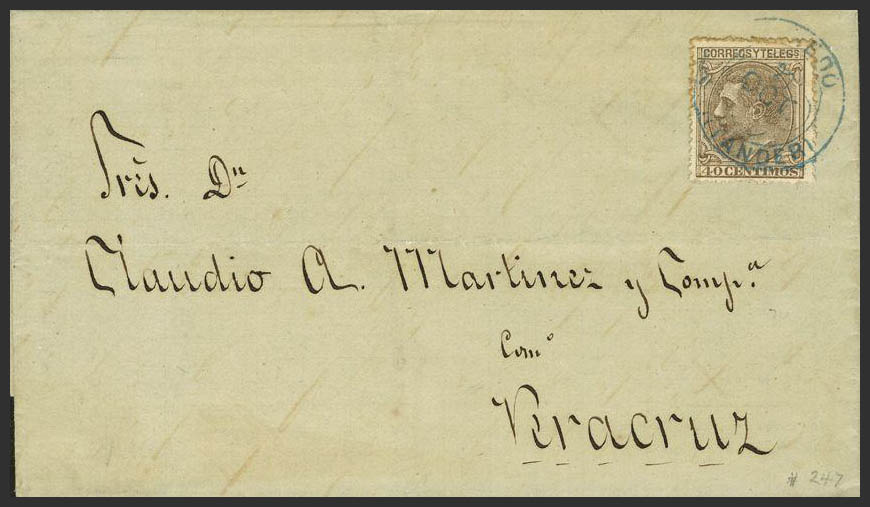 CORREOS Y TELEGS
40 CENTIMOS
Srēs. Dn
Claudio A. Martinez y Compa.
Como
Veracruz
# 247